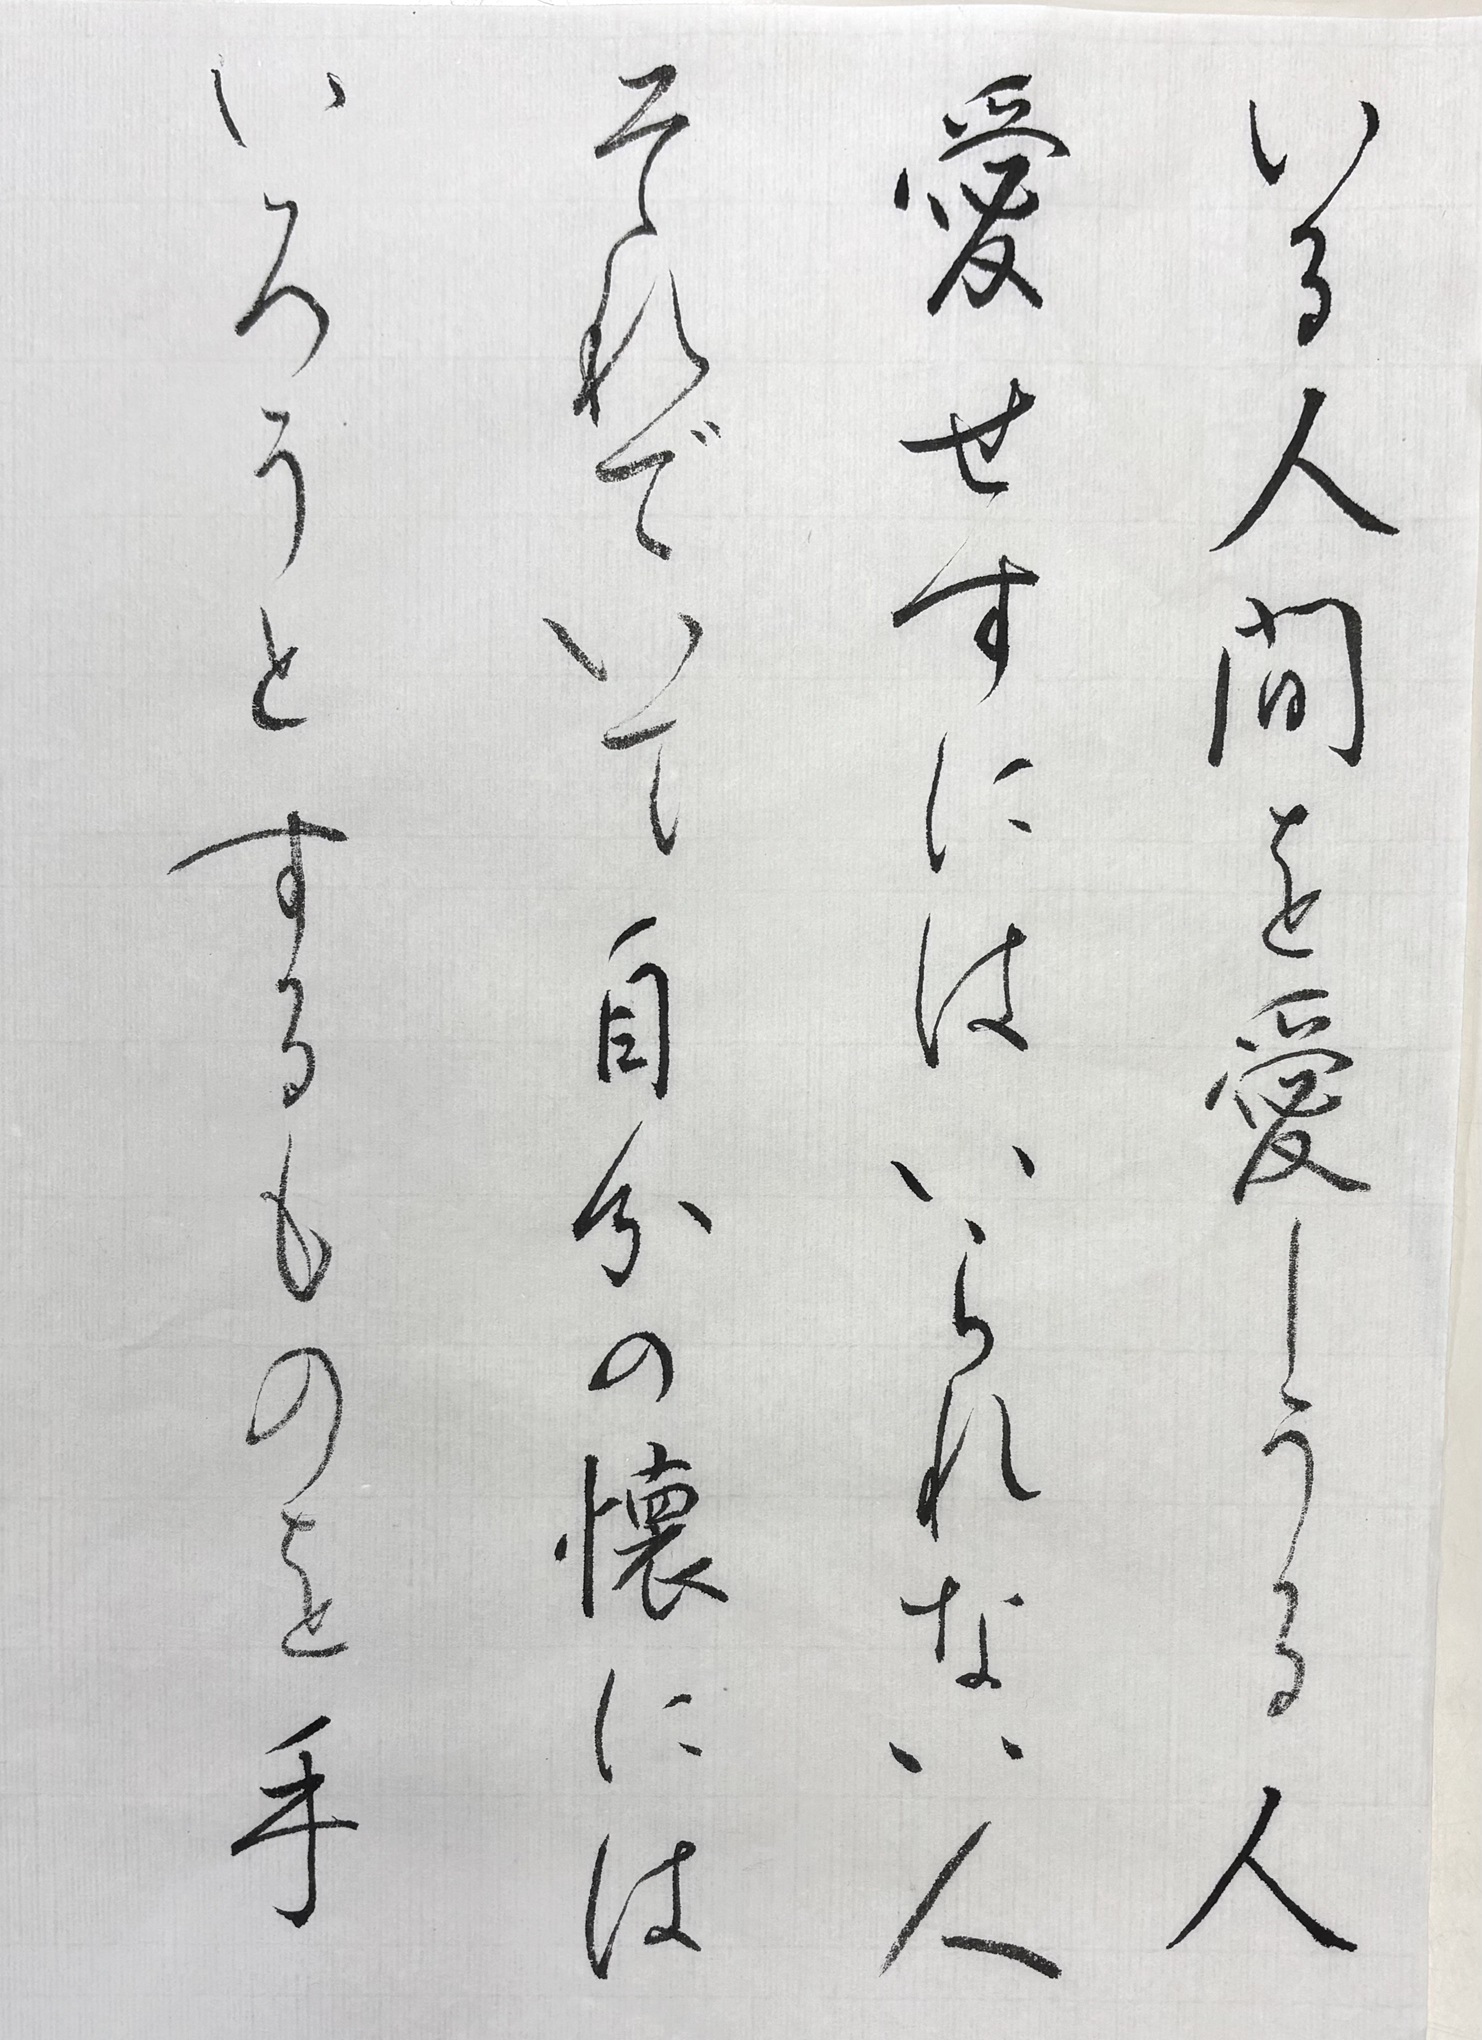 いる人間を愛しうる人
愛せすにはいられない人
それでいて自分の懐には
いろうとするものを手